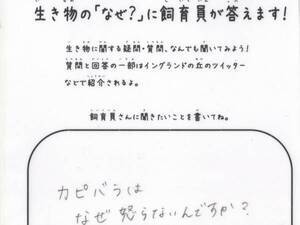 生き物の「なぜ?」に飼育員が答えます!
生き物に関する疑問・質問、なんでも聞いてみよう!
質問と回答の一部はイングランドの丘のツイッター
などで紹介されるよ。
飼育員さんに聞きたいことを書いてね。
カピバラは
なぜ怒らないんですか?